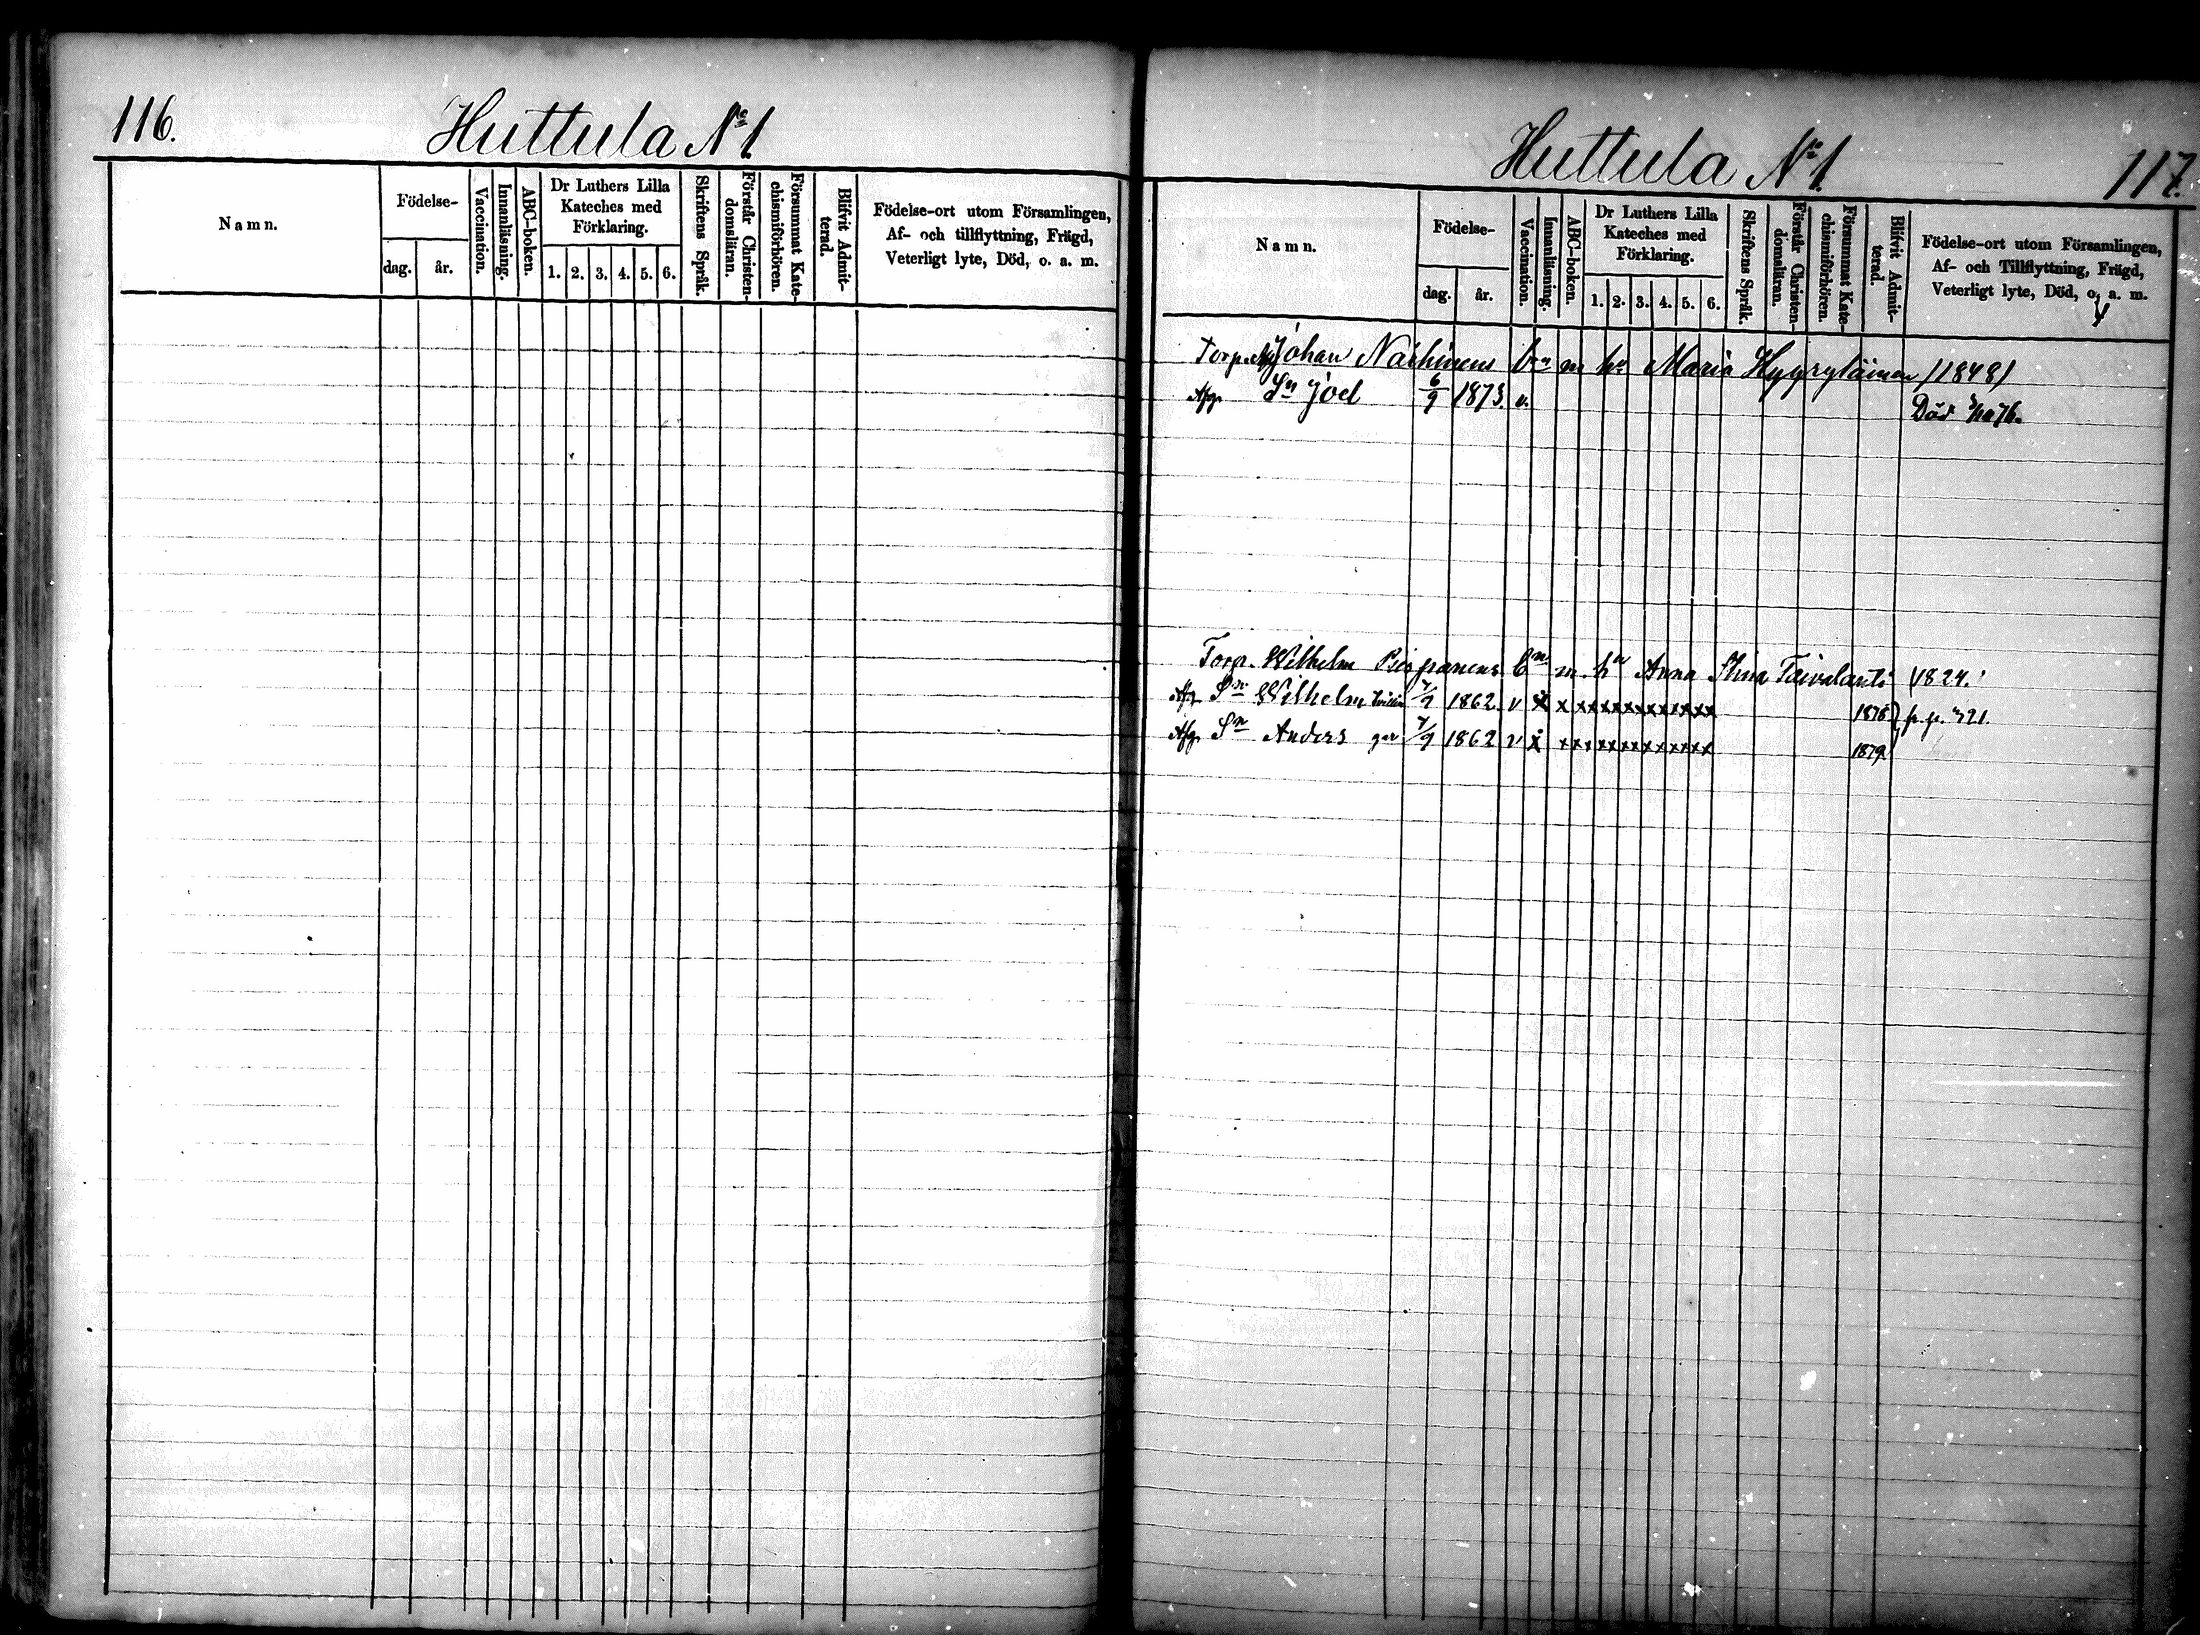 116.
Huttula No 1.
Namn.
Födelse-
dag.
år.
Vaccination.
Innanläsning.
ABC-boken.
Dr Luthers Lilla
Kateches med
Förklaring.
1. 2. 3. 4. 5. 6.
Skriftens Språk.
Förstår Christen-
domsläran.
Försummat Kate-
chismiförhören.
Blifvit Admit-
terad.
Födelse-ort utom Församlingen,
Af- och tillflyttning, Frägd,
Veterligt lyte, Död, o. a. m.
Huttula No 1.
117.
Namn.
Födelse-
dag.
år.
Vaccination.
Innanläsning.
ABC-boken.
Dr Luthers Lilla
Kateches med
Förklaring.
1. 2. 3. 4. 5. 6.
Skriftens Språk.
Förstår Christen-
domsläran.
Försummat Kate-
chismiförhören.
Blifvit Admit-
terad.
Födelse-ort utom Församlingen,
Af- och Tillflyttning, Frägd,
Veterligt lyte, Död, o. a. m.
Torp. Johan bn m hu Maria Hyyryläinen /1848/
Afg. Sn Joel 6/9 1873. v. Död 76.
Torp. Wilhelm bn m hu Anna Stina Taivalanti 1824.
Afg. Sn Wilhelm 7/9 1862. v x x xxxxxxxxxxxx 1878 p. p. 321.
Afg. Sn Anders 7/9 1862 v x xxxxxxxxxxxxx 1879